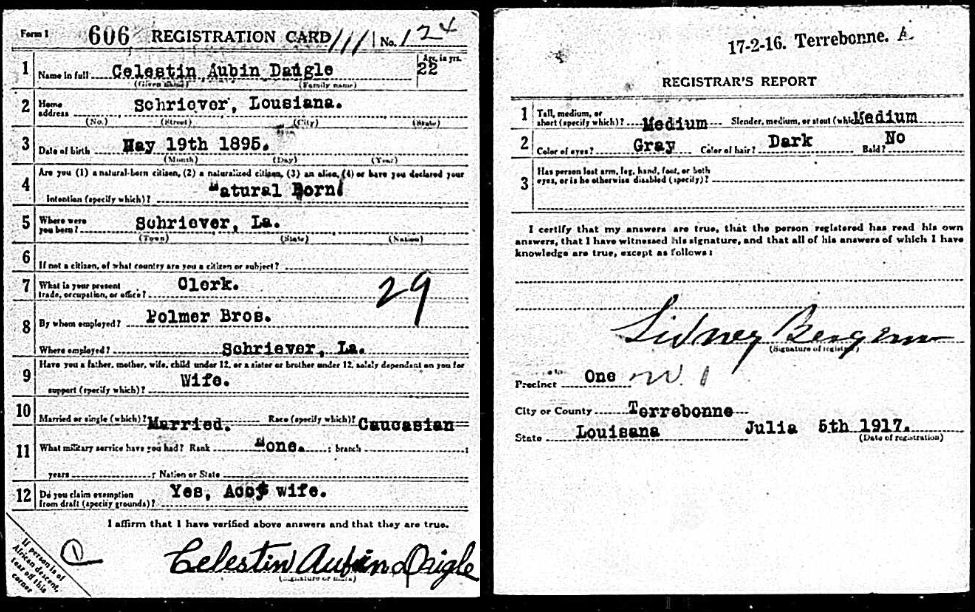 Form 1 606 REGISTRATION CARD No. 124
1 Name in full Celestin Aubin Daigle Age, in yrs. 22
(Given name) (Family name)
2 Home address Schriever, Lousiana.
(No.) (Street) (City) (State)
3 Date of birth May 19th 1895.
(Month) (Day) (Year)
4 Are you (1) a natural-born citizen, (2) a naturalized citizen, (3) an alien, (4) or have you declared your
intention (specify which)? Natural Born
5 Where were you born? Schriever, La.
(Town) (State) (Nation)
6 If not a citizen, of what country are you a citizen or subject?
7 What is your present trade, occupation, or office? Clerk.
29
8 By whom employed? Polmer Bros.
Where employed? Schriever, La.
9 Have you a father, mother, wife, child under 12, or a sister or brother under 12, solely dependent on you for
support (specify which)? Wife.
10 Married or single (which)? Married. Race (specify which)? Caucasian
11 What military service have you had? Rank None. ; branch ;
years ; Nation or State
12 Do you claim exemption from draft (specify grounds)? Yes, Acct wife.
I affirm that I have verified above answers and that they are true.
1
If person is of African descent, tear off this corner
Celestin Aubin Daigle
17-2-16. Terrebonne. A.
REGISTRAR'S REPORT
1 Tall, medium, or short (specify which)? Medium Slender, medium, or stout (which)? Medium
2 Color of eyes? Gray Color of hair? Dark Bald? No
3 Has person lost arm, leg, hand, foot, or both
eyes, or is he otherwise disabled (specify)?
I certify that my answers are true, that the person registered has read his own
answers, that I have witnessed his signature, and that all of his answers of which I have
knowledge are true, except as follows:
Sidney
(Signature of registrar)
Precinct One
City or County Terrebonne
State Louisana Julia 5th 1917.
(Date of registration)